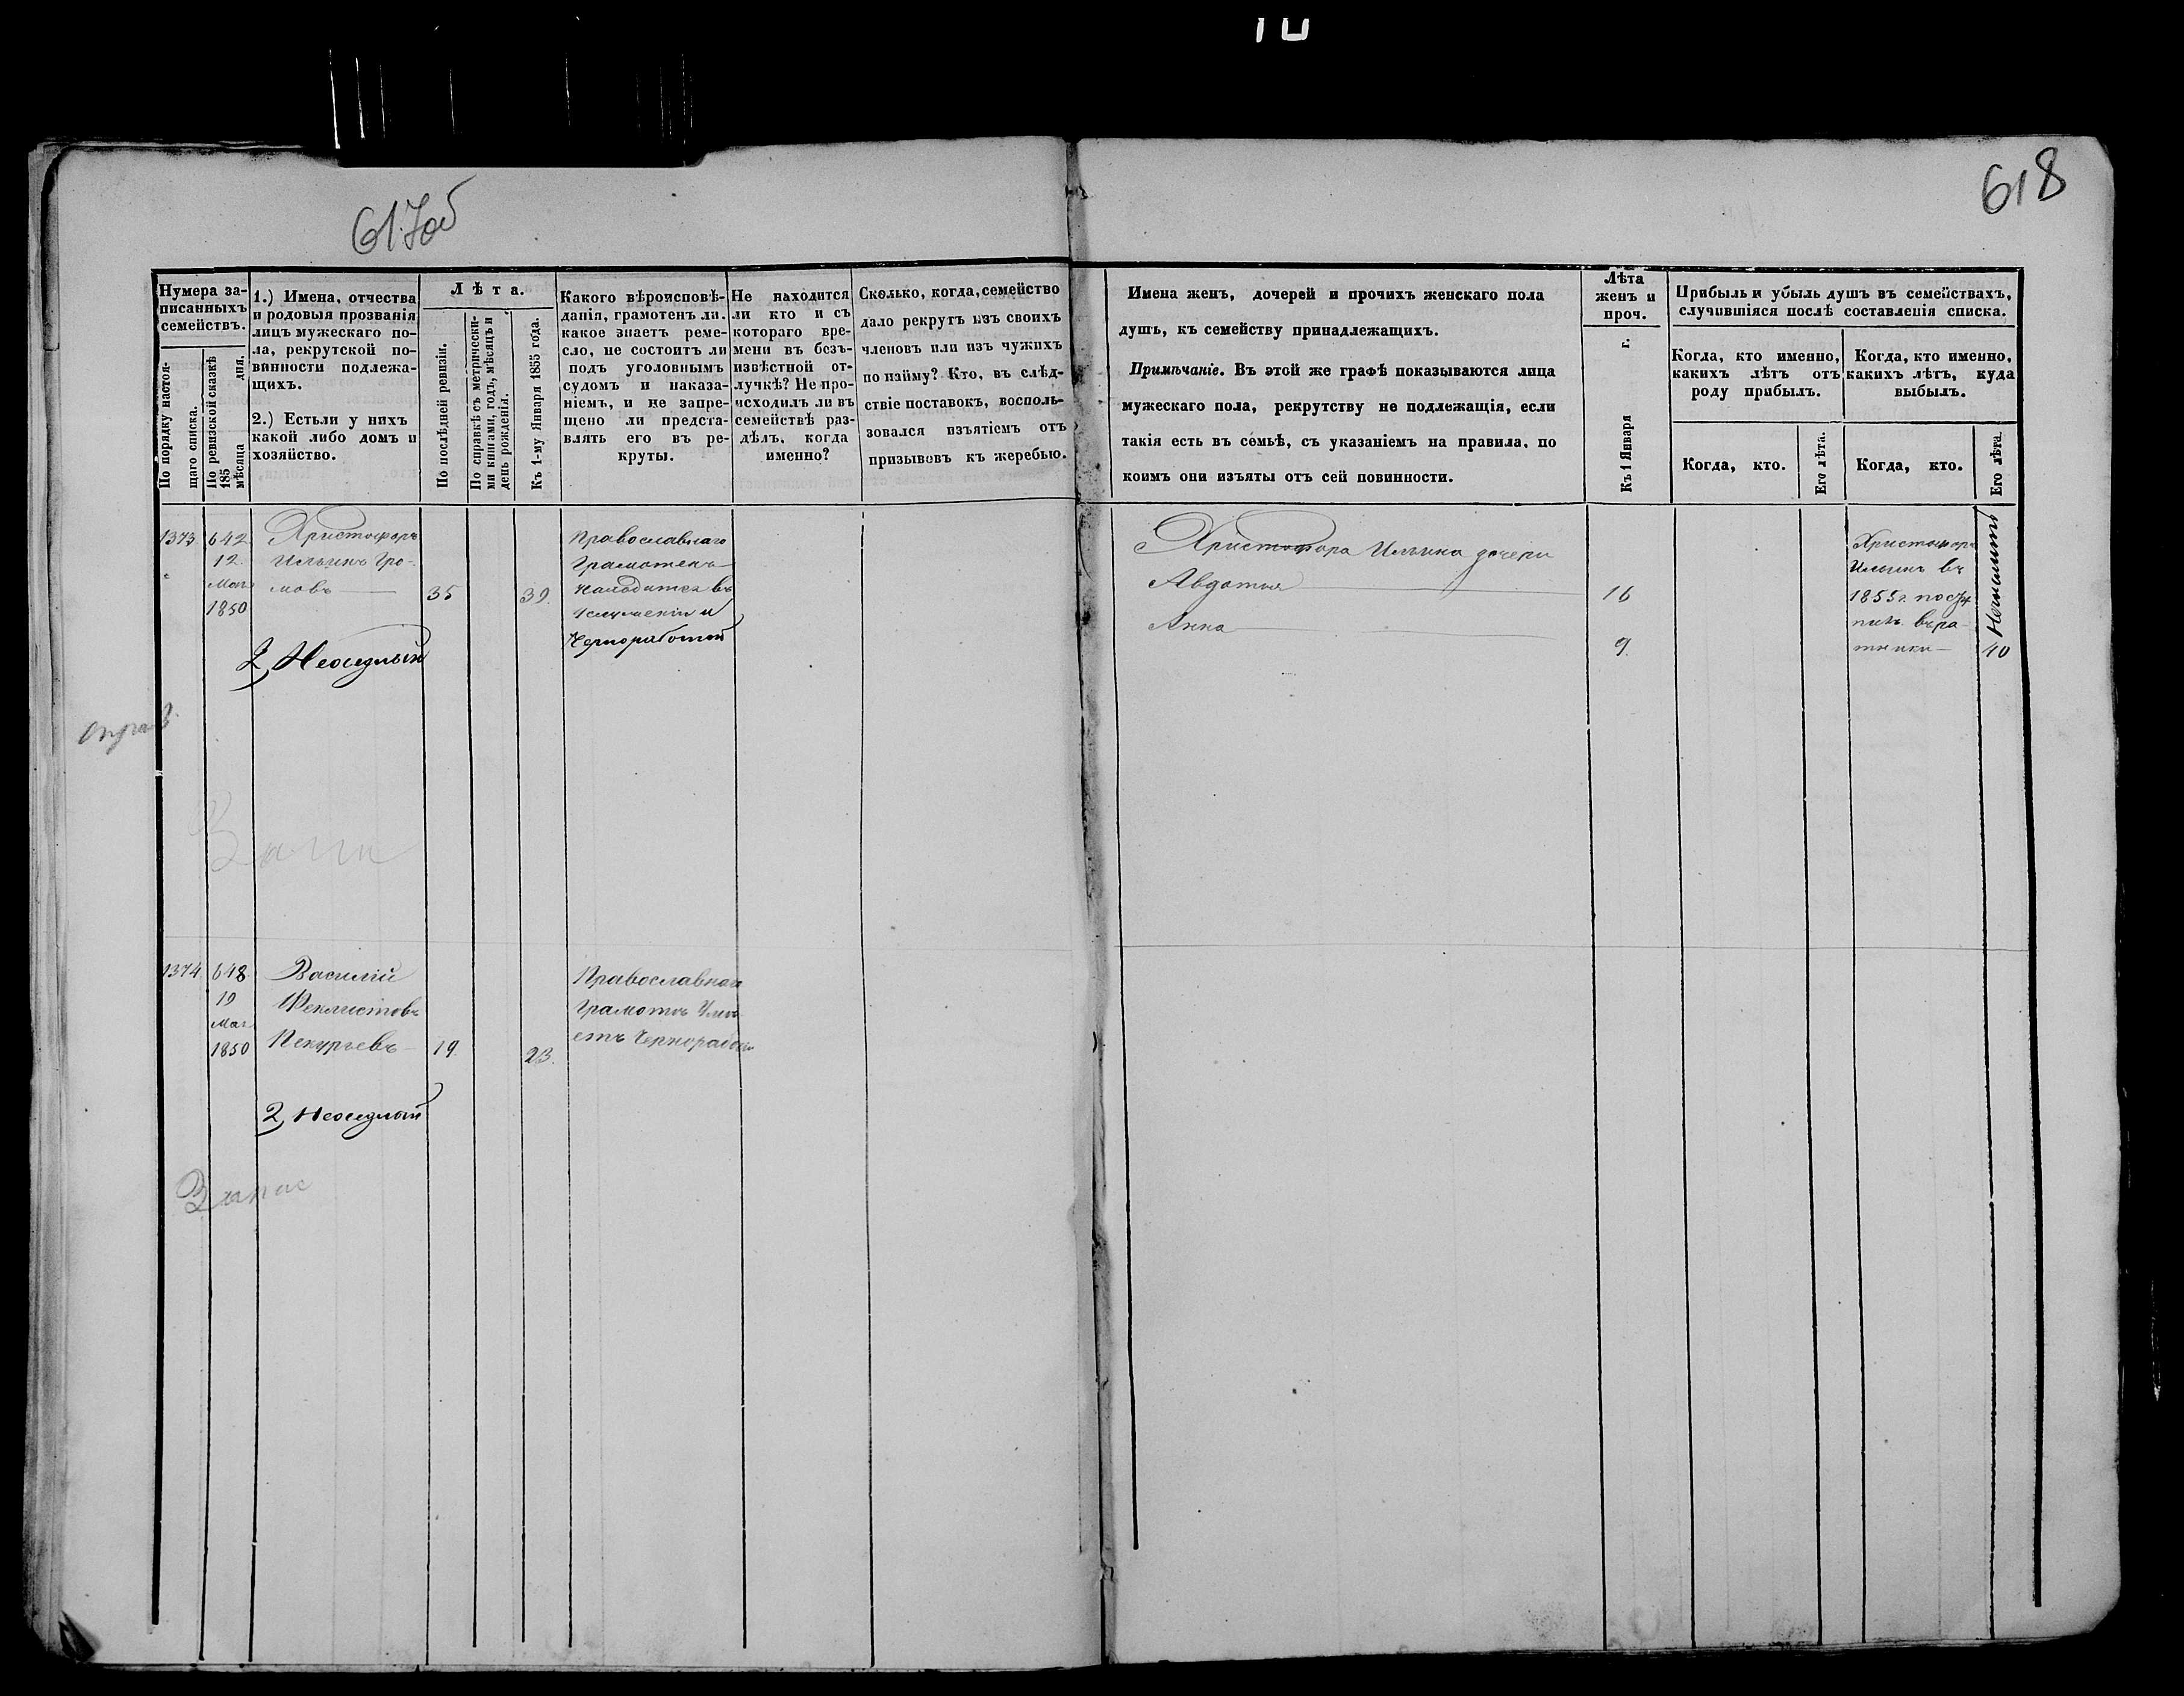 617об
618
Нумера за-
писанныхъ
семействъ.
По порядку настоя-
щаго списка.
По ревизской сказкѣ
185
мѣсяца дня.
1.) Имена, отчества
и родовыя прозванія
лицъ мужескаго по-
ла, рекрутской по-
винности подлежа-
щихъ.
2.) Естьли у нихъ
какой либо домъ и
хозяйство.
Лѣта.
По послѣдней ревизіи.
По справкѣ съ метрически-
ми книгами, годъ, мѣсяцъ и
день рожденія.
Къ 1-му Января 1855 года.
Какого вѣроисповѣ-
данія, грамотенъ ли.
какое знаетъ реме-
сло, не состоитъ ли
подъ уголовнымъ
судомъ и наказа-
ніемъ, и не запре-
щено ли предста-
влять его въ ре-
круты.
Не находится
ли кто и съ
котораго вре-
мени въ безъ-
извѣстной от-
лучкѣ? Не про-
исходилъ ли въ
семействѣ раз-
дѣлъ, когда
именно?
Сколько, когда, семейство
дало рекрутъ изъ своихъ
членовъ или изъ чужихъ
по найму? Кто, въ слѣд-
ствіе поставокъ, восполь-
зовался изъятіемъ отъ
призывовъ къ жеребью.
Имена женъ, дочерей и прочихъ женскаго пола
душъ, къ семейству принадлежащихъ.
Примѣчаніе. Въ этой же графѣ показываются лица
мужескаго пола, рекрутству не подлежащія, если
такія есть въ семьѣ, съ указаніемъ на правила, по
коимъ они изъяты отъ сей повинности.
Лѣта
женъ и
проч.
Къ 1 Января г.
Прибыль и убыль душъ въ семействахъ,
случившіяся послѣ составленія списка.
Когда, кто именно,
какихъ лѣтъ отъ
роду прибылъ.
Когда, кто именно,
какихъ лѣтъ, куда
выбылъ.
Когда, кто.
Его лѣта.
Когда, кто.
Его лѣта.
1373.
642.
12
Мая
1850
Христофоръ
Ильинъ Гро-
мовъ
35
39.
2, Неоседлый
Православнаго
Грамотенъ
находится въ
услуженіи и
Чернорабочей
Христофора Ильина дочери
Авдотья
16
Анна
9.
Христофоръ
Ильинъ въ
1855 г. посту
пилъ въ ра
тники
40
Запас
1374
648
19
Мая
1850
Василій
Феклистовъ
19.
23.
2, Неоседлый
Православнаго
Грамотѣ Умѣ
етъ Чернорабоч
Запас